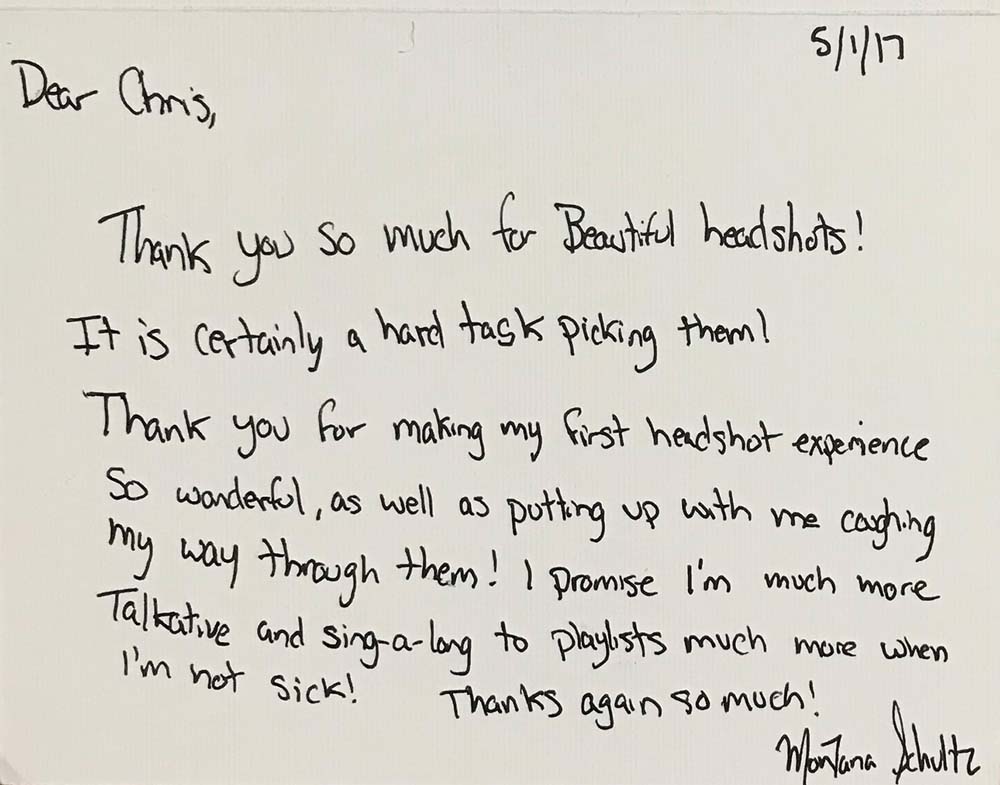 5/1/17
Dear Chris,
Thank you so much for Beautiful headshots!
It is certainly a hard task picking them!
Thank you for making my first headshot experience
So wonderful, as well as putting up with me coughing
my way through them! I promise I'm much more
Talkative and sing-a-long to playlists much more when
I'm not sick! Thanks again so much!
Montana Schultz